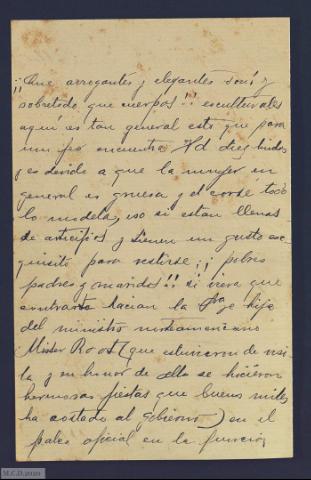 ¡Que arrogantes y elegantes son! y
sobretodo que cuerpos!! esculturales
aquí es tan general esto que para
una encuentra Ud diez lindas,
y es debido a que la mujer en
general es gruesa y el corsé todo
lo modela, eso si estan llenas
de artificios y tienen un gusto ex-
quisito para vestirse, ¡¡pobres
padres y maridos!! si viera que
contraste hacian la Sra e hija
del ministro norteamericano
Mister Root (que estuvieron de visi-
ta y en honor de ella se hicieron
hermosas fiestas que buenos miles
ha costado al gobierno) en el
palco oficial en la función
M.C.D.2020